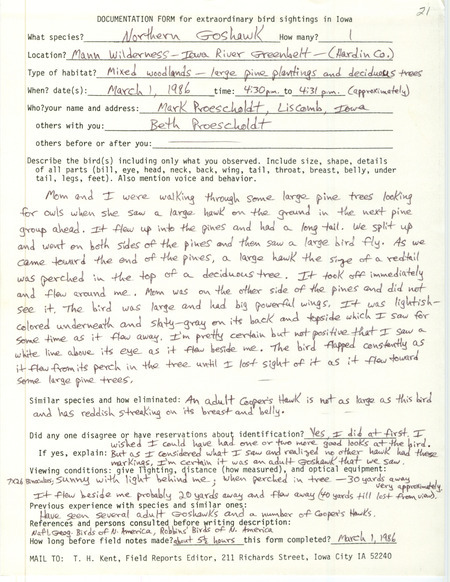 21
DOCUMENTATION FORM for extraordinary bird sightings in Iowa
What species? Northern Goshawk How many? 1
Location? Mann Wilderness - Iowa River Greenbelt - (Hardin Co.)
Type of habitat? Mixed woodlands - large pine plantings and deciduous trees
When? date(s): March 1, 1986 time: 4:30 p.m. to 4:31 p.m. (approximately)
Who? your name and address: Mark Proescholdt, Liscomb, Iowa
others with you: Beth Proescholdt
others before or after you:
Describe the bird(s) including only what you observed. Include size, shape, details
of all parts (bill, eye, head, neck, back, wing, tail, throat, breast, belly, under
tail, legs, feet). Also mention voice and behavior.
Mom and I were walking through some large pine trees looking
for owls when she saw a large hawk on the ground in the next pine
group ahead. It flew up into the pines and had a long tail. We split up
and went on both sides of the pines and then saw a large bird fly. As we
came toward the end of the pines, a large hawk the size of a redtail
was perched in the top of a deciduous tree. It took off immediately
and flew around me. Mom was on the other side of the pines and did not
see it. The bird was large and had big powerful wings. It was lightish-
colored underneath and slaty-gray on its back and topside which I saw for
some time as it flew away. I'm pretty certain but not positive that I saw a
white line above its eye as it flew beside me. The bird flapped constantly as
it flew from its perch in the tree until I lost sight of it as it flew toward
some large pine trees.
Similar species and how eliminated: An adult Cooper's Hawk is not as large as this bird
and has reddish streaking on its breast and belly.
Did any one disagree or have reservations about identification? Yes, I did at first. I
wished I could have had one or two more good looks at the bird.
If yes, explain: But as I considered what I saw and realized no other hawk had these
markings, I'm certain it was an adult Goshawk that we saw.
Viewing conditions: give lighting, distance (how measured), and optical equipment:
7x26 Binoculars, Sunny with light behind me; when perched in tree - 30 yards away
very approximately.
It flew beside me probably 20 yards away and flew away (40 yards till lost from view).
Previous experience with species and similar ones:
Have seen several adult Goshawks and a number of Cooper's Hawks.
References and persons consulted before writing description:
Natl. Geog. Birds of N. America, Robbins' Birds of N. America
How long before field notes made? about 5½ hours this form completed? March 1, 1986
MAIL TO: T. H. Kent, Field Reports Editor, 211 Richards Street, Iowa City IA 52240